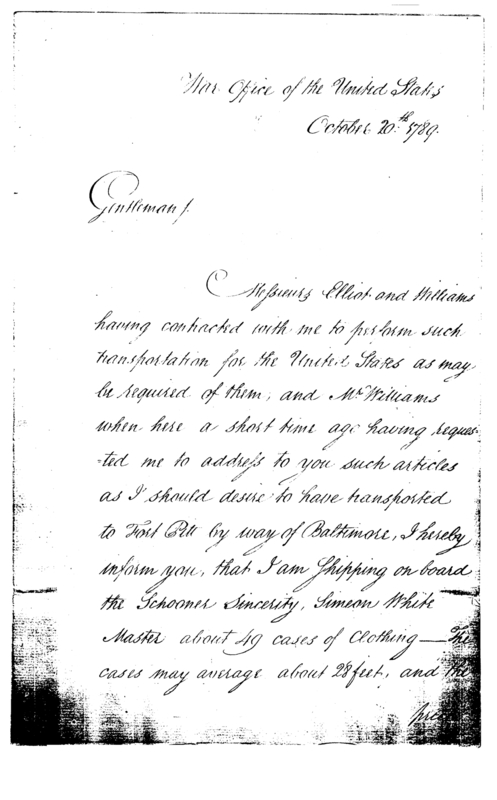 War Office of the United States
October 20th 1789.
Gentleman/.
Messieurs Elliot and Williams
having contracted with me to perform such
transportation for the United States as may
be required of them, and Mr Williams
when here a short time ago having reques-
-ted me to address to you such articles
as I should desire to have transported
to Fort Pitt by way of Baltimore, I hereby
inform you, that I am Shipping on board
the Schooner Sincerity, Simeon White
Master about 49 cases of Clothing — The
cases may average about 28 feet, and the